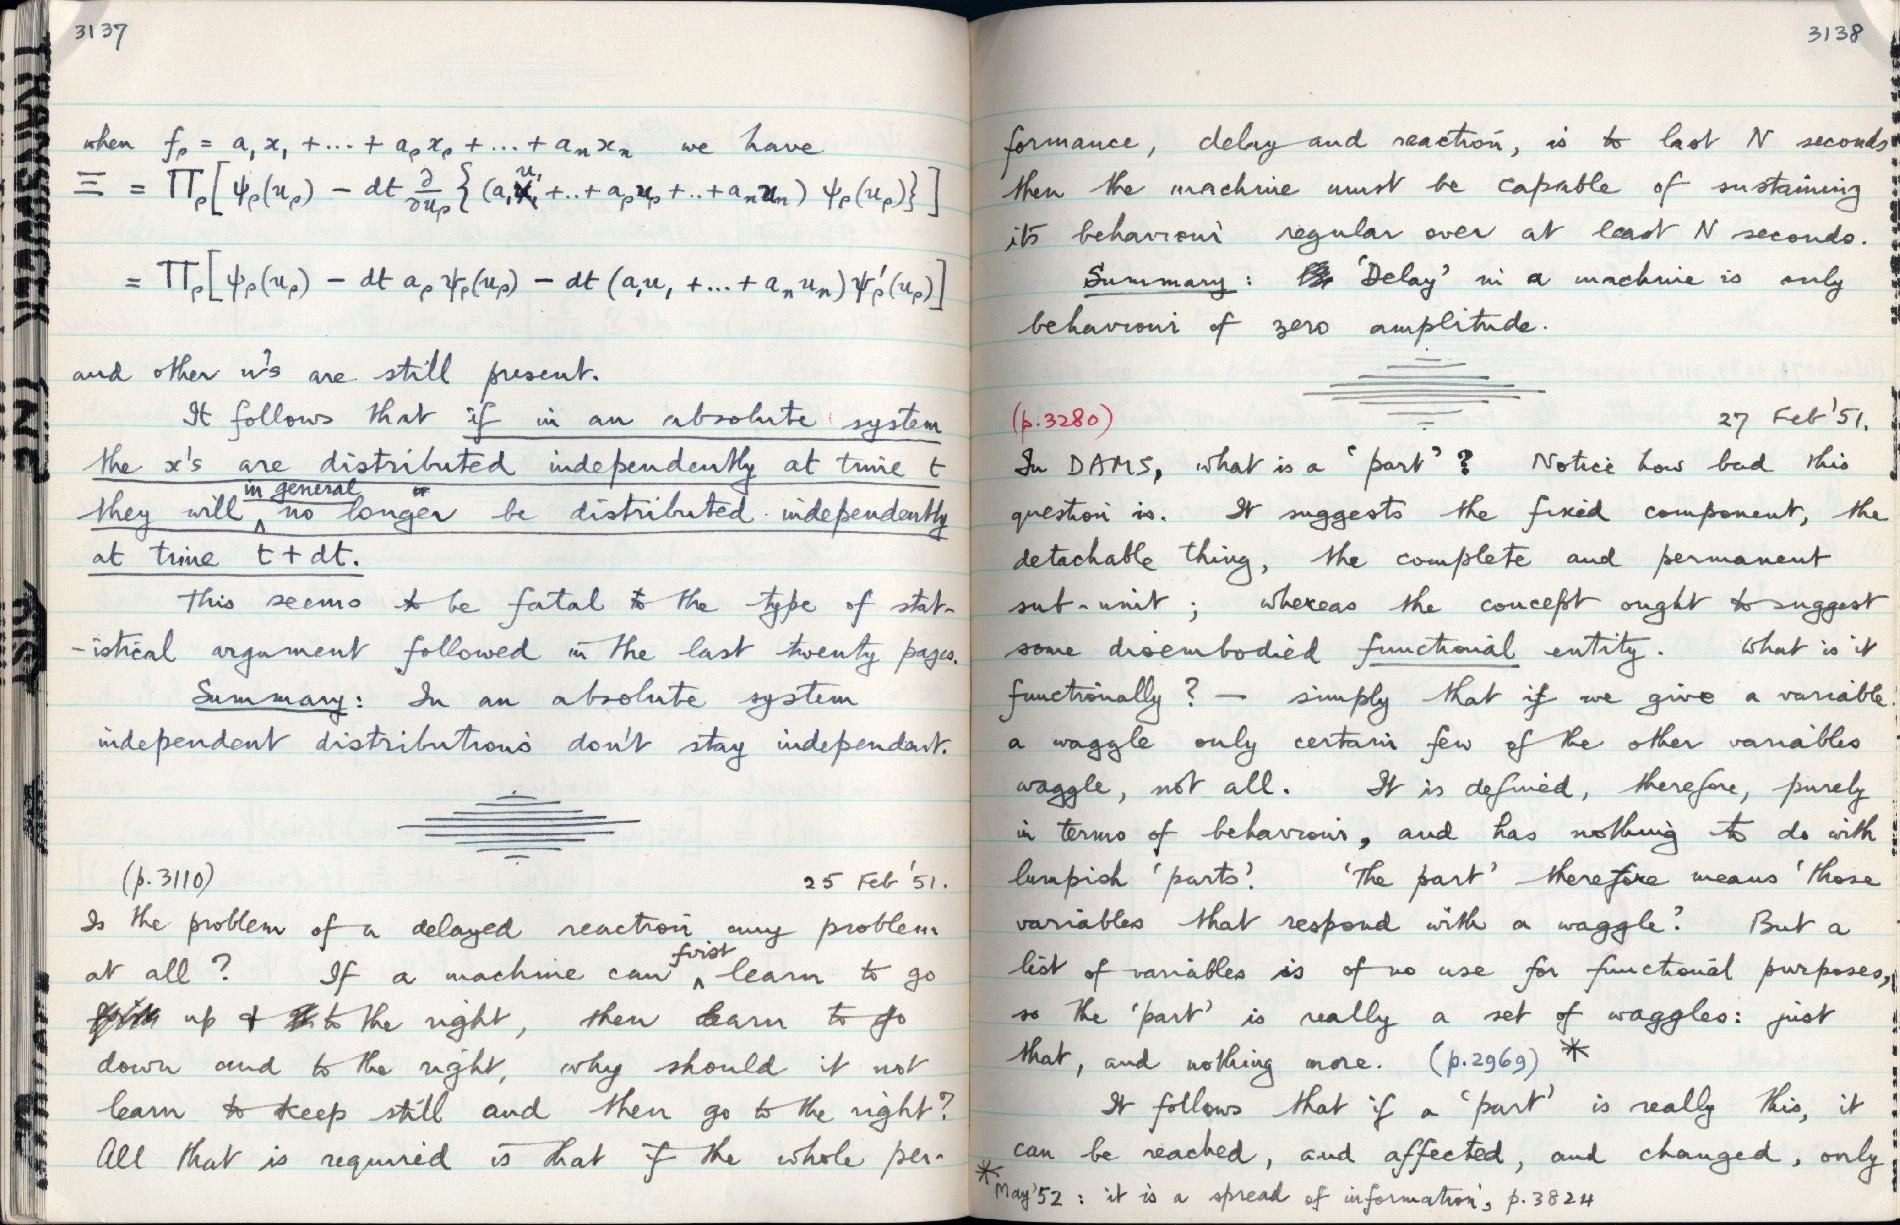 3137
when fₚ = a₁x₁ + ... + aₚxₚ + ... + aₙxₙ we have
Ξ = Πₚ[ψₚ(uₚ) − dt ∂/∂uₚ {(a₁u₁ + .. + aₚuₚ + .. + aₙuₙ) ψₚ(uₚ)}]
= Πₚ[ψₚ(uₚ) − dt aₚ ψₚ(uₚ) − dt (a₁u₁ + ... + aₙuₙ) ψ'ₚ(uₚ)]
and other u's are still present.
It follows that if in an absolute system
the x's are distributed independently at time t
they will in general no longer be distributed independently
at time t + dt.
This seems to be fatal to the type of stat-
-istical argument followed in the last twenty pages.
Summary: In an absolute system
independent distributions don't stay independent.
(p.3110) 25 Feb '51.
Is the problem of a delayed reaction any problem
at all? If a machine can first learn to go
up & to the right, then learn to go
down and to the right, why should it not
learn to keep still and then go to the right?
All that is required is that if the whole per-
3138
formance, delay and reaction, is to last N seconds
then the machine must be capable of sustaining
its behaviour regular over at least N seconds.
Summary: 'Delay' in a machine is only
behaviour of zero amplitude.
(p.3280) 27 Feb '51.
In DAMS, what is a 'part'? Notice how bad this
question is. It suggests the fixed component, the
detachable thing, the complete and permanent
sub-unit; whereas the concept ought to suggest
some disembodied functional entity. What is it
functionally? — simply that if we give a variable
a waggle only certain few of the other variables
waggle, not all. It is defined, therefore, purely
in terms of behaviour, and has nothing to do with
lumpish 'parts'. 'The part' therefore means 'those
variables that respond with a waggle'. But a
list of variables is of no use for functional purposes,
so the 'part' is really a set of waggles: just
that, and nothing more. (p.2969) *
It follows that if a 'part' is really this, it
can be reached, and affected, and changed, only
* May '52: it is a spread of information, p.3824